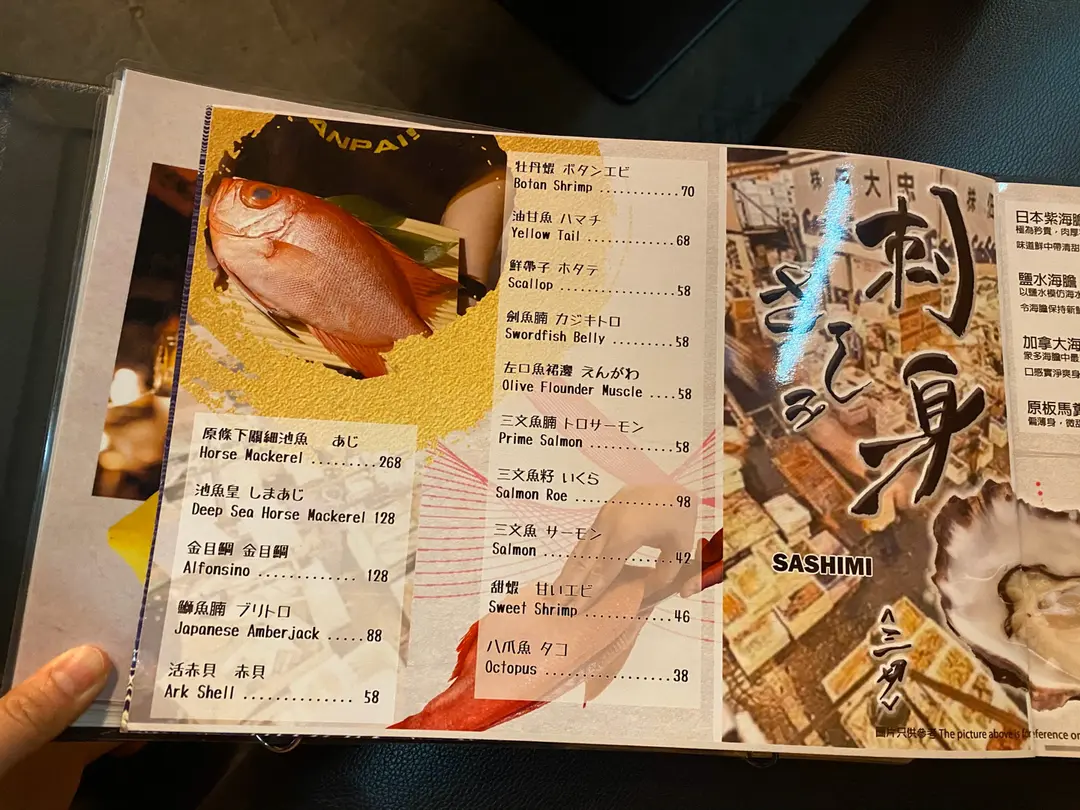 ANPAI!
原條下關細池魚 あじ
Horse Mackerel .........268
池魚皇 しまあじ
Deep Sea Horse Mackerel 128
金目鯛 金目鯛
Alfonsino ............ 128
鰤魚腩 ブリトロ
Japanese Amberjack .....88
活赤貝 赤貝
Ark Shell .............. 58
牡丹蝦 ボタンエビ
Botan Shrimp ............70
油甘魚 ハマチ
Yellow Tail .............68
鮮帶子 ホタテ
Scallop .................58
劍魚腩 カジキトロ
Swordfish Belly .........58
左口魚裙邊 えんがわ
Olive Flounder Muscle ....58
三文魚腩 トロサーモン
Prime Salmon ............58
三文魚籽 いくら
Salmon Roe ..............98
三文魚 サーモン
Salmon ..................42
甜蝦 甘いエビ
Sweet Shrimp ............46
八爪魚 タコ
Octopus .................38
大忠
刺身
さしみ
SASHIMI
<三切>
圖片只供參考 The picture above is for reference on
日本紫海膽
味道鮮中帶清甜
鹽水海膽
以鹽水模仿海水
令海膽保持新鮮
加拿大海
眾多海膽中最
口感實淨爽身
原板馬糞
偏薄身，微甜